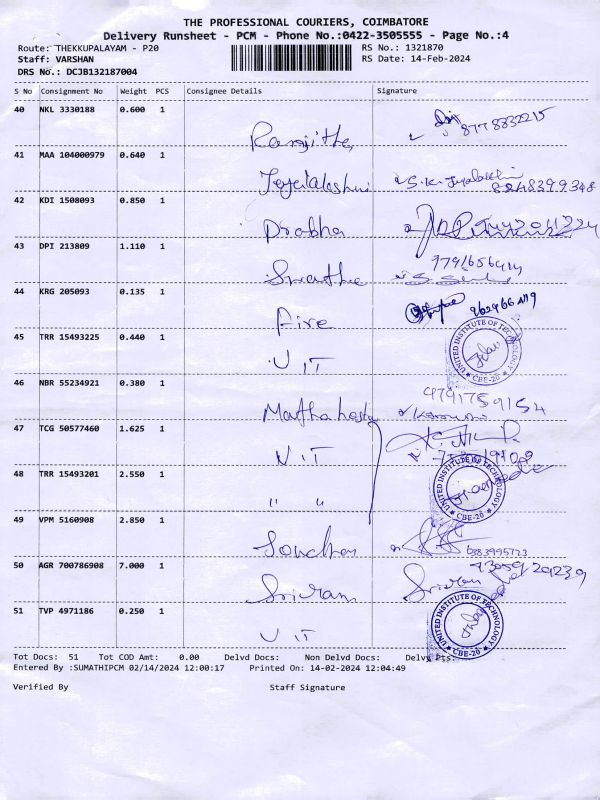 THE PROFESSIONAL COURIERS, COIMBATORE
Delivery Runsheet - PCM - Phone No.:0422-3505555 - Page No.:4
Route: THEKKUPALAYAM - P20 RS No.: 1321870
Staff: VARSHAN RS Date: 14-Feb-2024
DRS No.: DCJB132187004
S No Consignment No Weight PCS Consignee Details Signature
40 NKL 3330188 0.600 1
8778832215
41 MAA 104000979 0.640 1
8248399348
42 KDI 1508093 0.850 1
Prabha
43 DPI 213809 1.110 1
Swathe
44 KRG 205093 0.135 1
Fire
45 TRR 15493225 0.440 1
UIT
UNITED INSTITUTE OF TECHNOLOGY
CBE-20
46 NBR 55234921 0.380 1
4791759154
47 TCG 50577460 1.625 1
UIT
48 TRR 15493201 2.550 1
" "
UNITED INSTITUTE OF TECHNOLOGY
CBE-20
49 VPM 5160908 2.850 1
50 AGR 700786908 7.000 1
Sriram Sriram
51 TVP 4971186 0.250 1
UIT
UNITED INSTITUTE OF TECHNOLOGY
CBE-20
Tot Docs: 51 Tot COD Amt: 0.00 Delvd Docs: Non Delvd Docs: Delvy Pts:
Entered By :SUMATHIPCM 02/14/2024 12:00:17 Printed On: 14-02-2024 12:04:49
Verified By Staff Signature